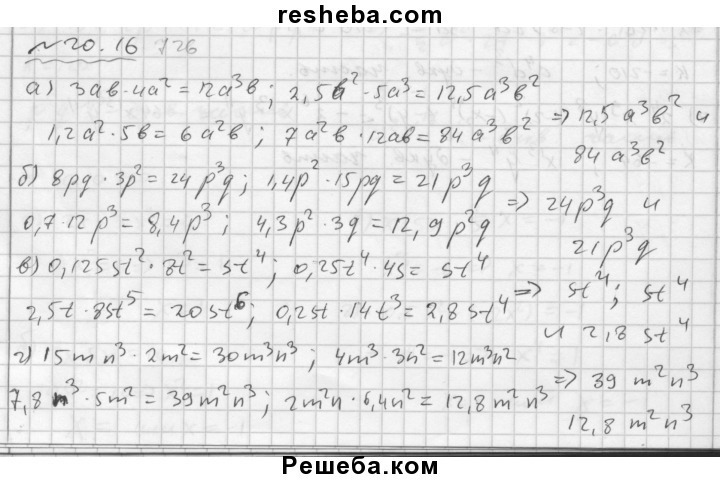 resheba.com
№20.16 726
а) 3ab·4a² = 12a³b; 2,5b²·5a³ = 12,5a³b² => 12,5a³b² и
1,2a²·5b = 6a²b; 7a²b·12ab = 84a³b² 84a³b²
б) 8pq·3p² = 24p³q; 1,4p²·15pq = 21p³q => 24p³q и
0,7·12p³ = 8,4p³; 4,3p²·3q = 12,9p²q 21p³q
в) 0,125st²·8t² = st⁴; 0,25t⁴·4s = st⁴ => st⁴; st⁴
2,5t·8st⁵ = 20st⁶; 0,2st·14t³ = 2,8st⁴ и 2,8 st⁴
г) 15mn³·2m² = 30m³n³; 4m³·3n² = 12m³n²
7,8n³·5m² = 39m²n³; 2m²n·6,4n² = 12,8m²n³ => 39 m²n³
12,8 m²n³
Решеба.ком